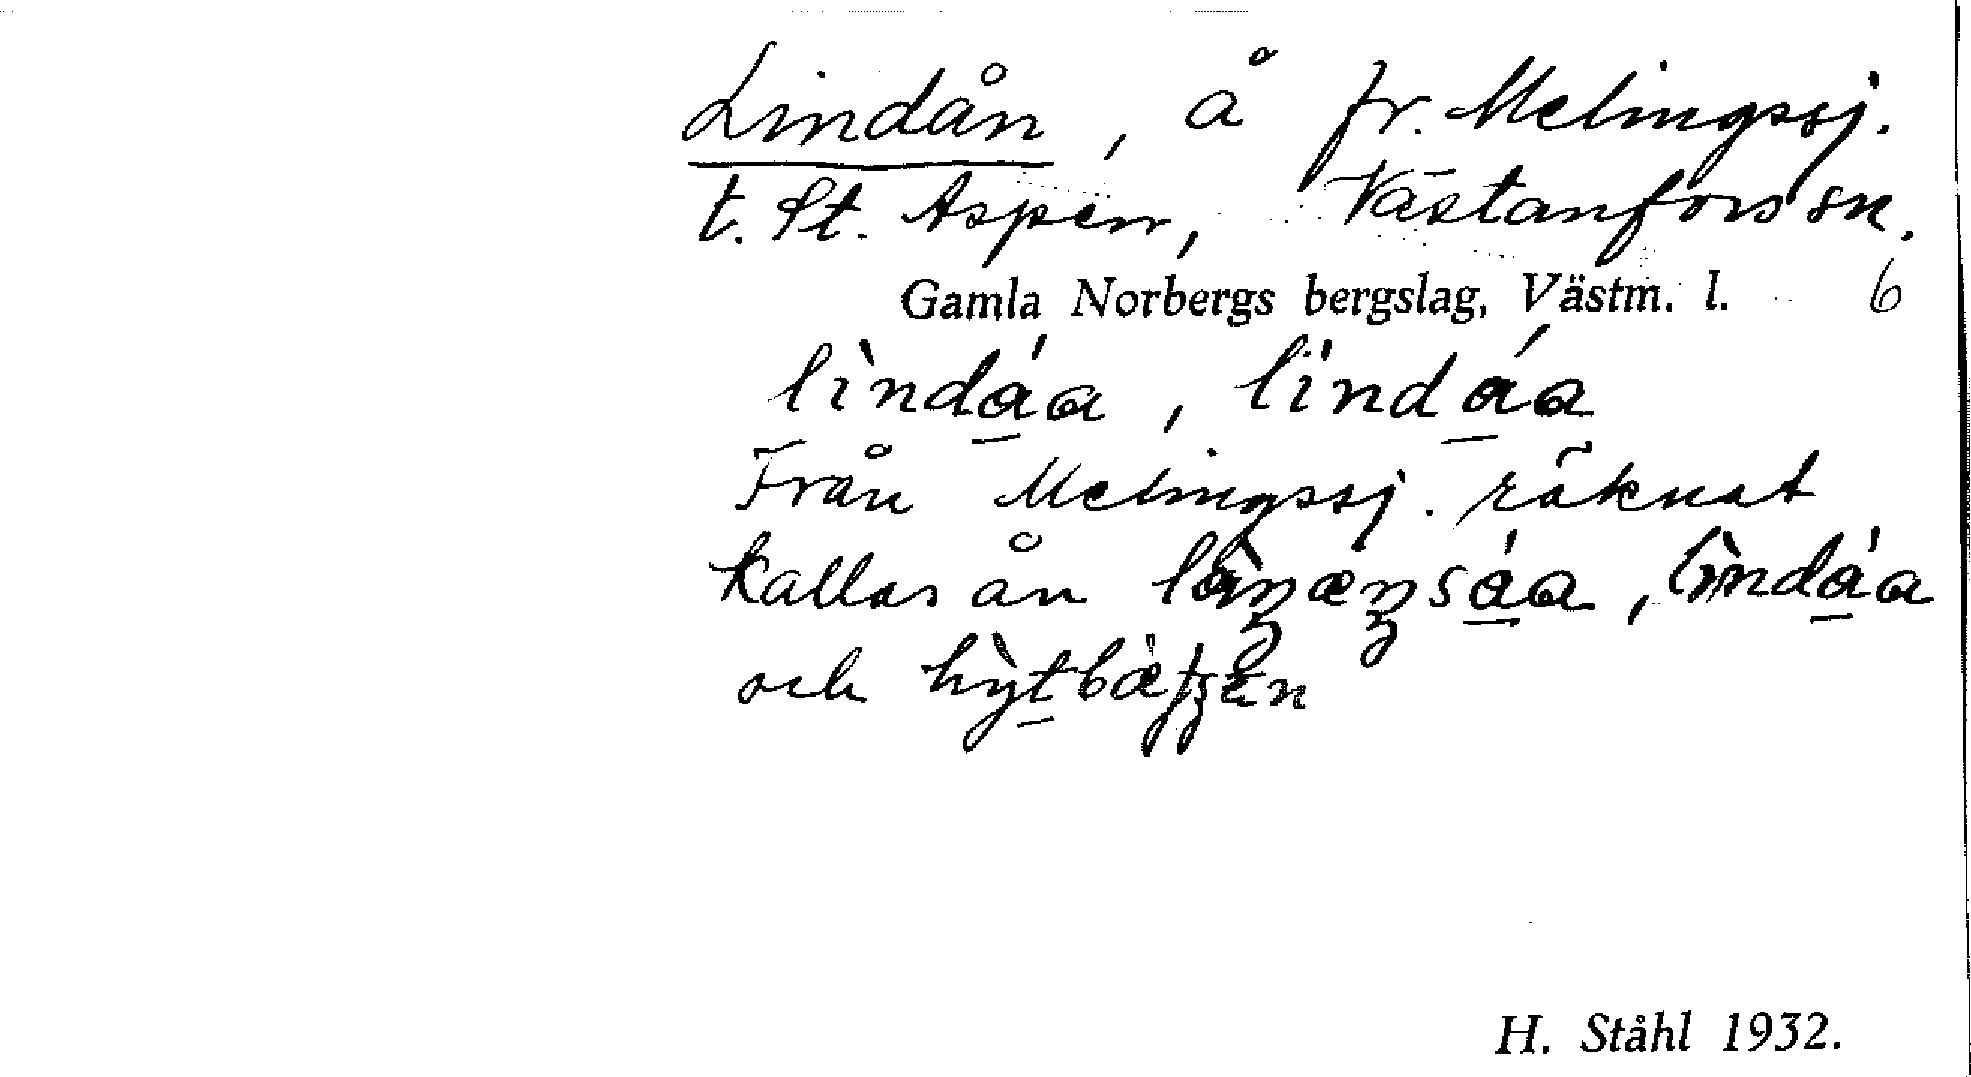 Lindån, å fr. Melingssj.
t. St. Aspen, Västanfors sn.
Gamla Norbergs bergslag, Västm. l. 6
lìndáa, lìndáa
Från Melingssj. räknat
kallas ån lìndáa
och
H. Ståhl 1932.